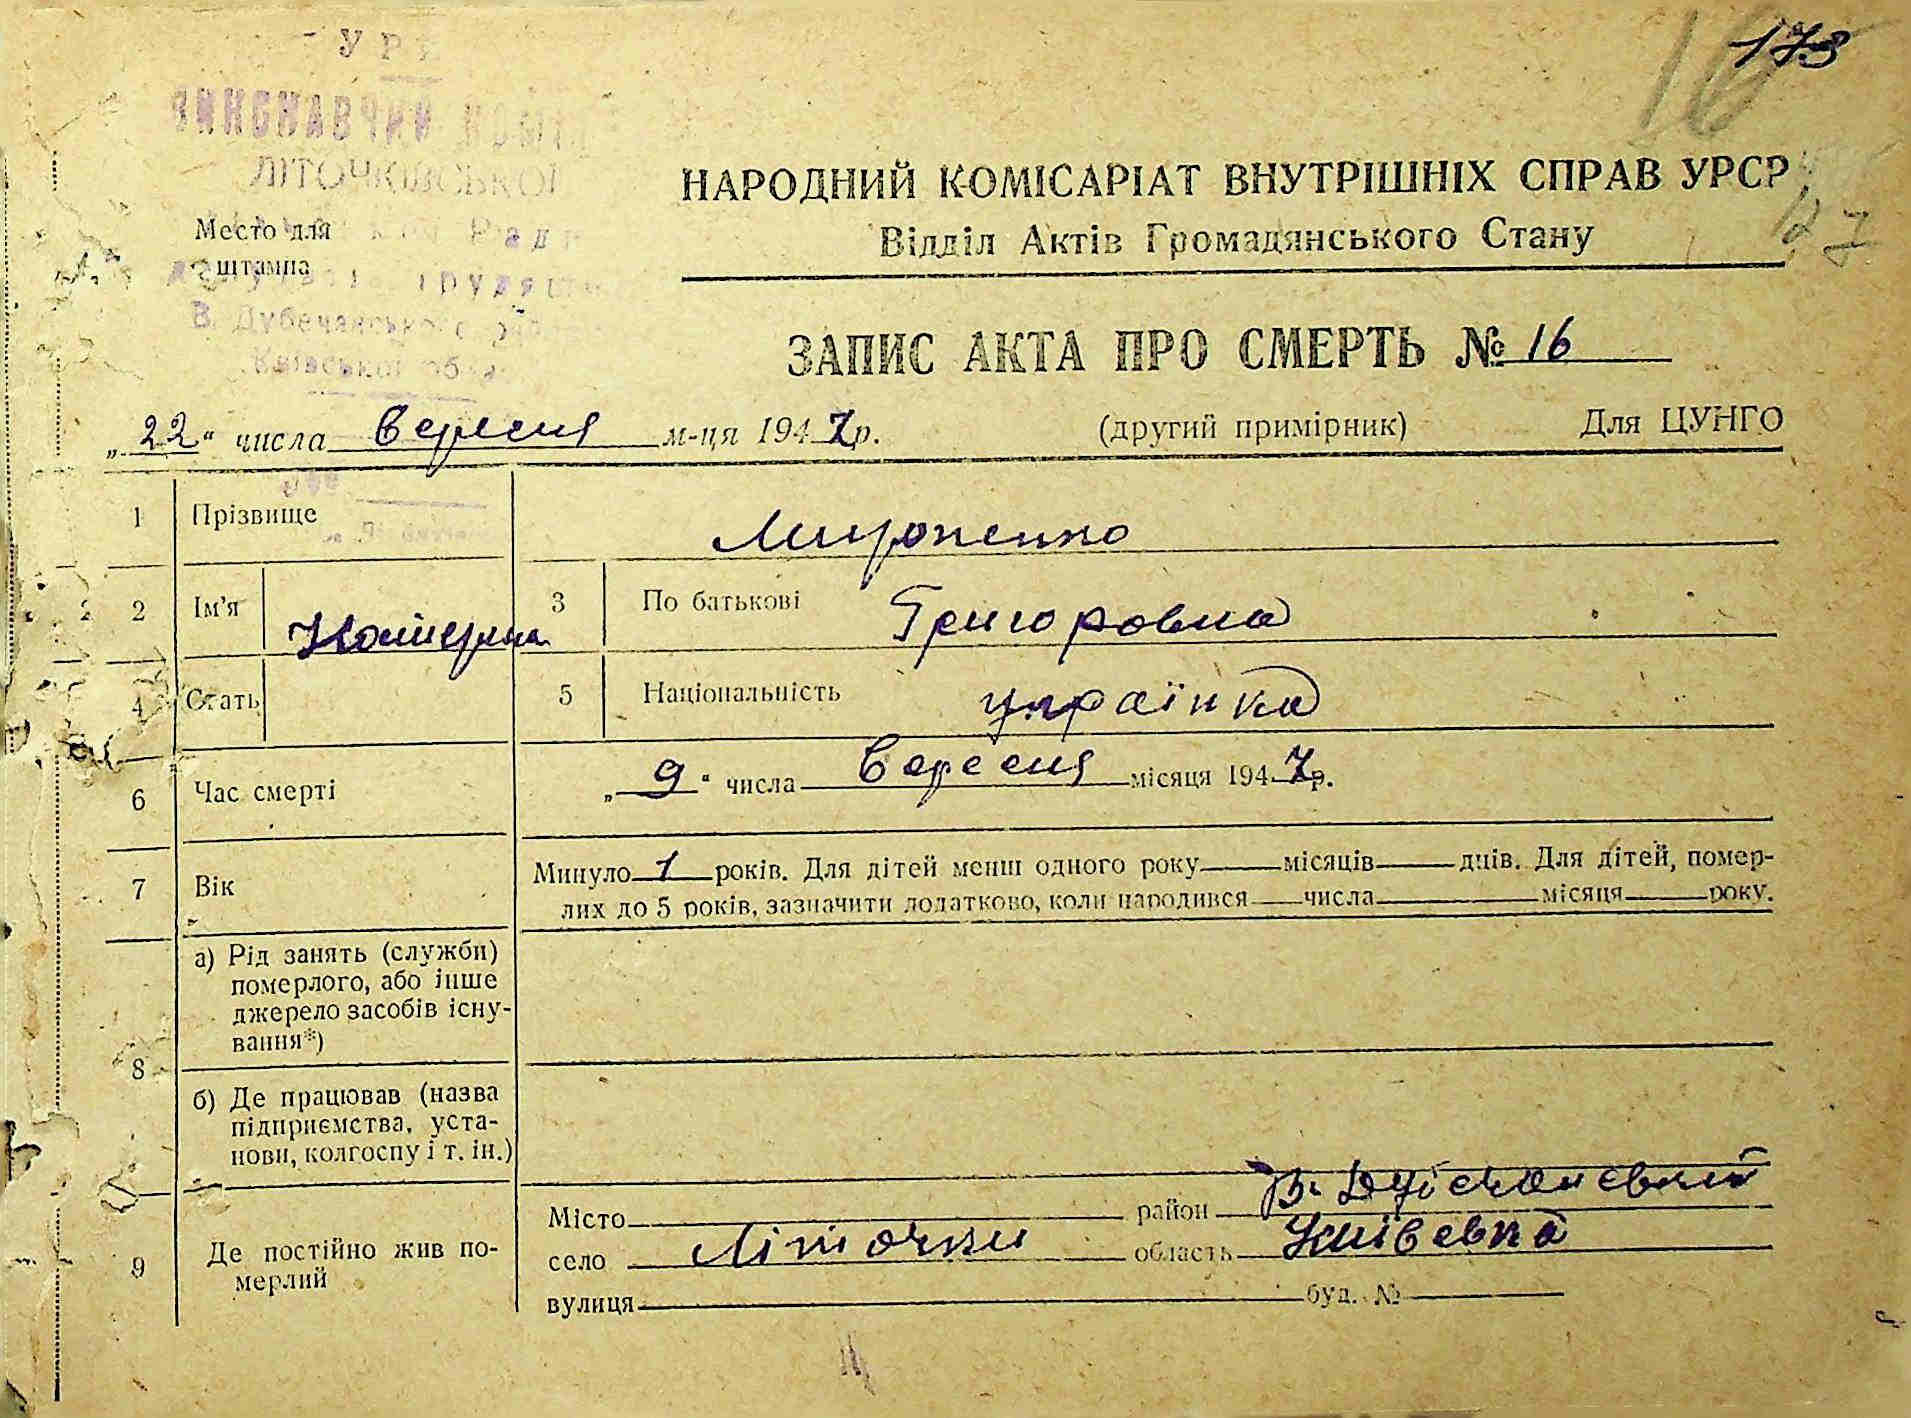 173
16
УРСР
ВИКОНАВЧИЙ КОМІТ
ЛІТОЧКІВСЬКОЇ
Ради
Место для
штампа
трудящ
В. Дубечанського району
Київської обл
НАРОДНИЙ КОМІСАРІАТ ВНУТРІШНІХ СПРАВ УРСР
Відділ Актів Громадянського Стану
ЗАПИС АКТА ПРО СМЕРТЬ № 16
„22“ числа вересня м-ця 1947 р. (другий примірник) Для ЦУНГО
1 Прізвище Мироненко
2 Ім’я Катерина 3 По батькові Григоровна
4 Стать 5 Національність українка
6 Час смерті „9“ числа вересня місяця 1947 р.
7 Вік Минуло 1 років. Для дітей менш одного року місяців днів. Для дітей, помер-
лих до 5 років, зазначити додатково, коли народився числа місяця року.
8 а) Рід занять (служби)
померлого, або інше
джерело засобів існу-
вання*)
б) Де працював (назва
підприємства, уста-
нови, колгоспу і т. ін.)
9 Де постійно жив по-
мерлий
Місто район В.
село Літочки область Київська
вулиця буд. №